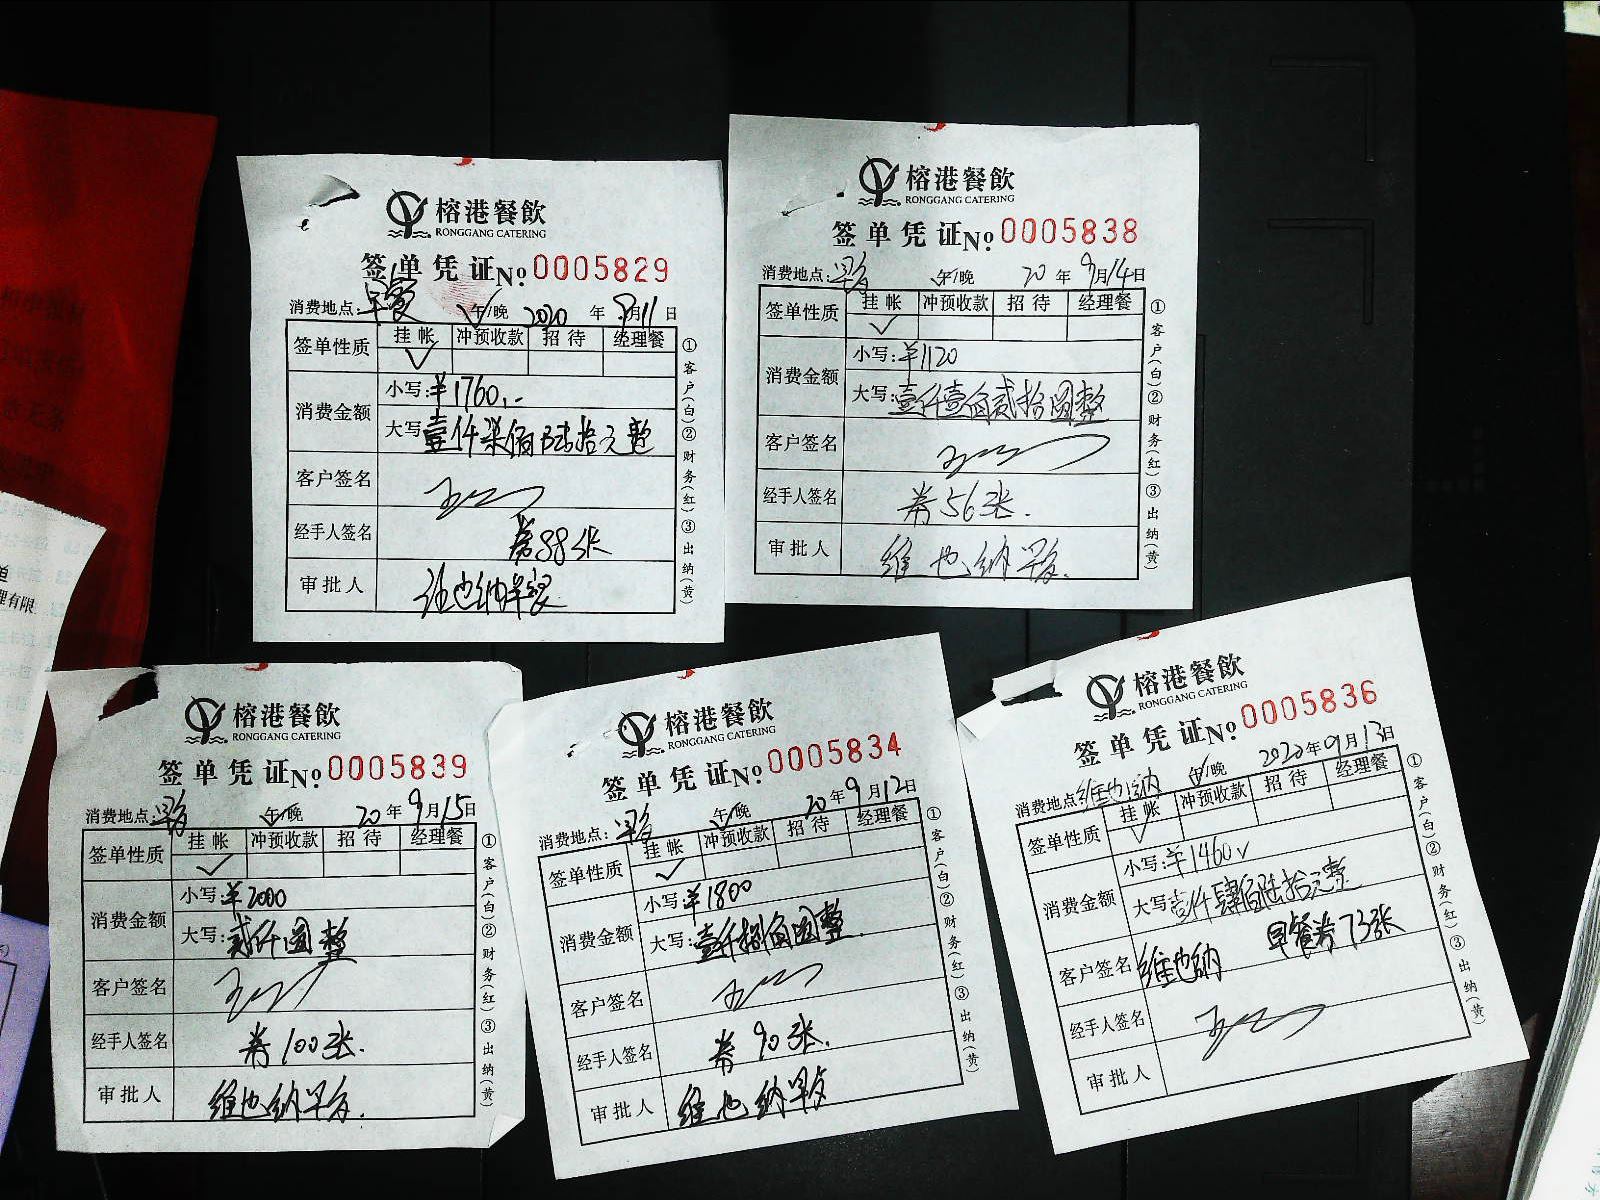 榕港餐飲
RONGGANG CATERING
签单凭证 No 0005829
消费地点: 早餐 午/晚 2020 年 9月11日
签单性质 挂帐 冲预收款 招待 经理餐
✓
消费金额 小写: ¥1760.-
大写: 壹仟柒佰陆拾元整
客户签名
经手人签名 券88张
审批人 维也纳早餐
①客户(白)②财务(红)③出纳(黄)
榕港餐飲
RONGGANG CATERING
签单凭证 No 0005838
消费地点: 早歺 午/晚 20 年 9月14日
签单性质 挂帐 冲预收款 招待 经理餐
✓
消费金额 小写: ¥1120
大写: 壹仟壹佰贰拾圆整
客户签名
经手人签名 券56张.
审批人 维也纳早歺.
①客户(白)②财务(红)③出纳(黄)
榕港餐飲
RONGGANG CATERING
签单凭证 No 0005839
消费地点: 早歺 午/晚 20 年 9月15日
签单性质 挂帐 冲预收款 招待 经理餐
✓
消费金额 小写: ¥2000
大写: 贰仟圆整
客户签名
经手人签名 券100张.
审批人 维也纳早歺.
①客户(白)②财务(红)③出纳(黄)
榕港餐飲
RONGGANG CATERING
签单凭证 No 0005834
消费地点: 早歺 午/晚 20 年 9月12日
签单性质 挂帐 冲预收款 招待 经理餐
✓
消费金额 小写: ¥1800
大写: 壹仟捌佰圆整
客户签名
经手人签名 券90张.
审批人 维也纳早歺
①客户(白)②财务(红)③出纳(黄)
榕港餐飲
RONGGANG CATERING
签单凭证 No 0005836
消费地点 维也纳 午/晚 2020年9月13日
签单性质 挂帐 冲预收款 招待 经理餐
✓
消费金额 小写: ¥1460
大写 壹仟肆佰陆拾元整
客户签名 维也纳 早餐券73张
经手人签名
审批人
①客户(白)②财务(红)③出纳(黄)
单
理有限